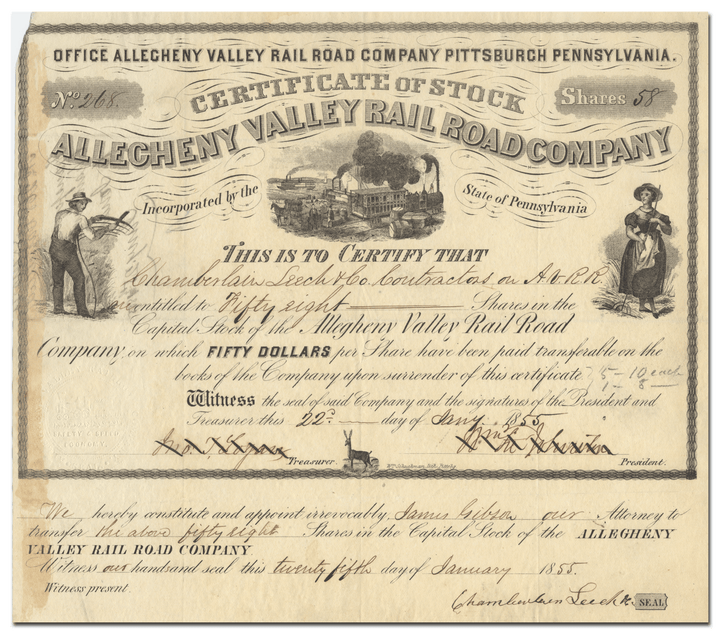 OFFICE ALLEGHENY VALLEY RAIL ROAD COMPANY PITTSBURGH PENNSYLVANIA.
No. 268.
CERTIFICATE OF STOCK
Shares 58
ALLEGHENY VALLEY RAIL ROAD COMPANY
Incorporated by the State of Pennsylvania
THIS IS TO CERTIFY THAT
Chamberlain Leech & Co. Contractors on A.V.R.R.
are entitled to Fifty eight Shares in the
Capital Stock of the Allegheny Valley Rail Road
Company, on which FIFTY DOLLARS per Share have been paid transferable on the
books of the Company upon surrender of this certificate 5 - 10 each
1 - 8 -
Witness the seal of said Company and the signatures of the President and
Treasurer this 22d day of Jany 1855
Treasurer. President.
We hereby constitute and appoint irrevocably James Gibson our Attorney to
transfer the above fifty eight Shares in the Capital Stock of the ALLEGHENY
VALLEY RAIL ROAD COMPANY
Witness our hand and seal this twenty fifth day of January 1855.
Witness present
Chamberlain Leech & SEAL